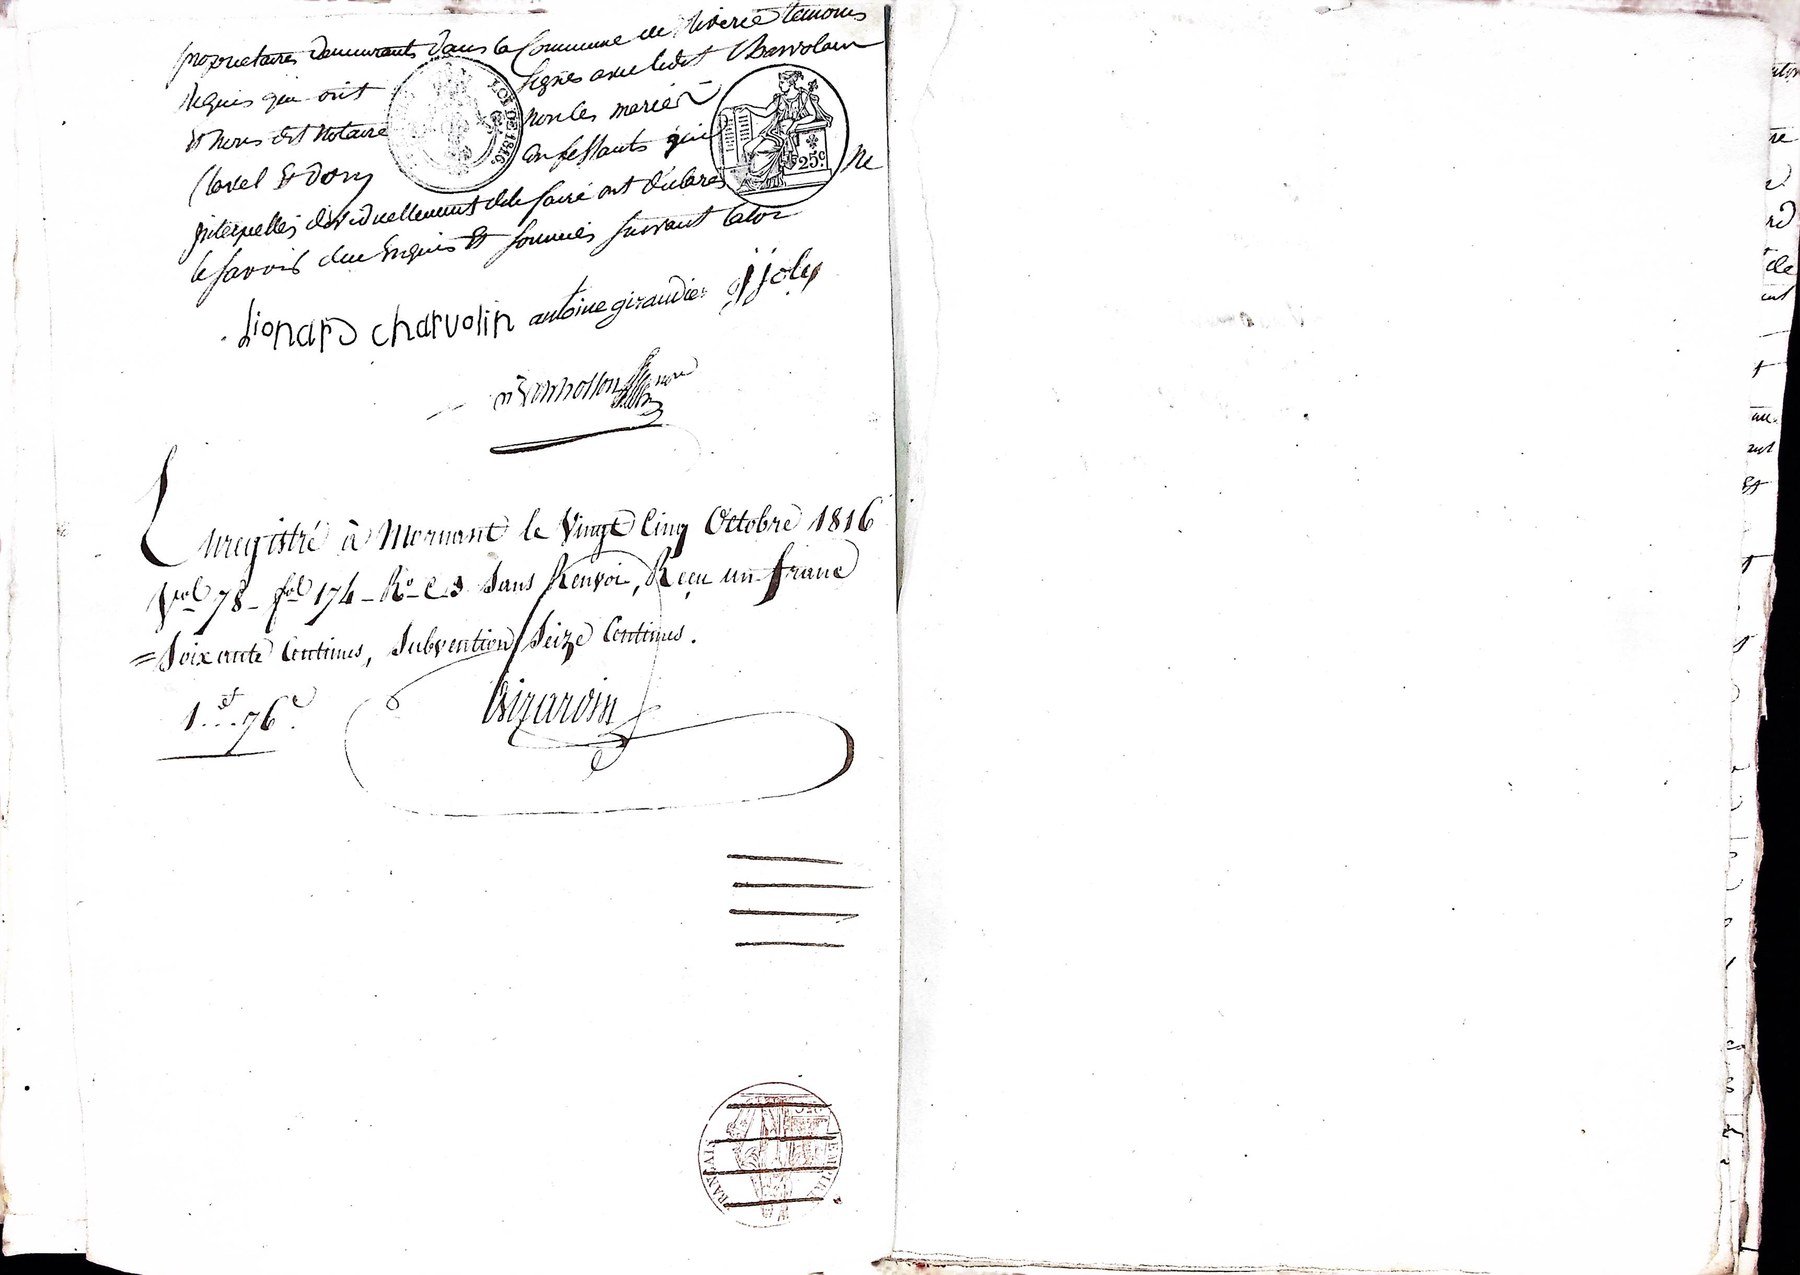 propriétaires demeurants dans la Commune de Riverie témoins
requis qui ont signés avec ledit Charvolin
& nous dit Notaire non les mariés
Clavel & Dory confessants qui ne
interpellés individuellement de le faire ont déclarés
le savoir due enquis & sommés suivant la loi
LOI DE 1816.
25c
Lionard charvolin antoine giraudier jjoly
Enregistré à Mornant le Vingt Cinq Octobre 1816
Vol 78 - fol 174 - Ro C 3 Sans Renvoi, Reçu un franc
= Soixante Centimes, Subvention Seize Centimes.
1f...76c.
Girardin
EMPIRE FRANÇAIS